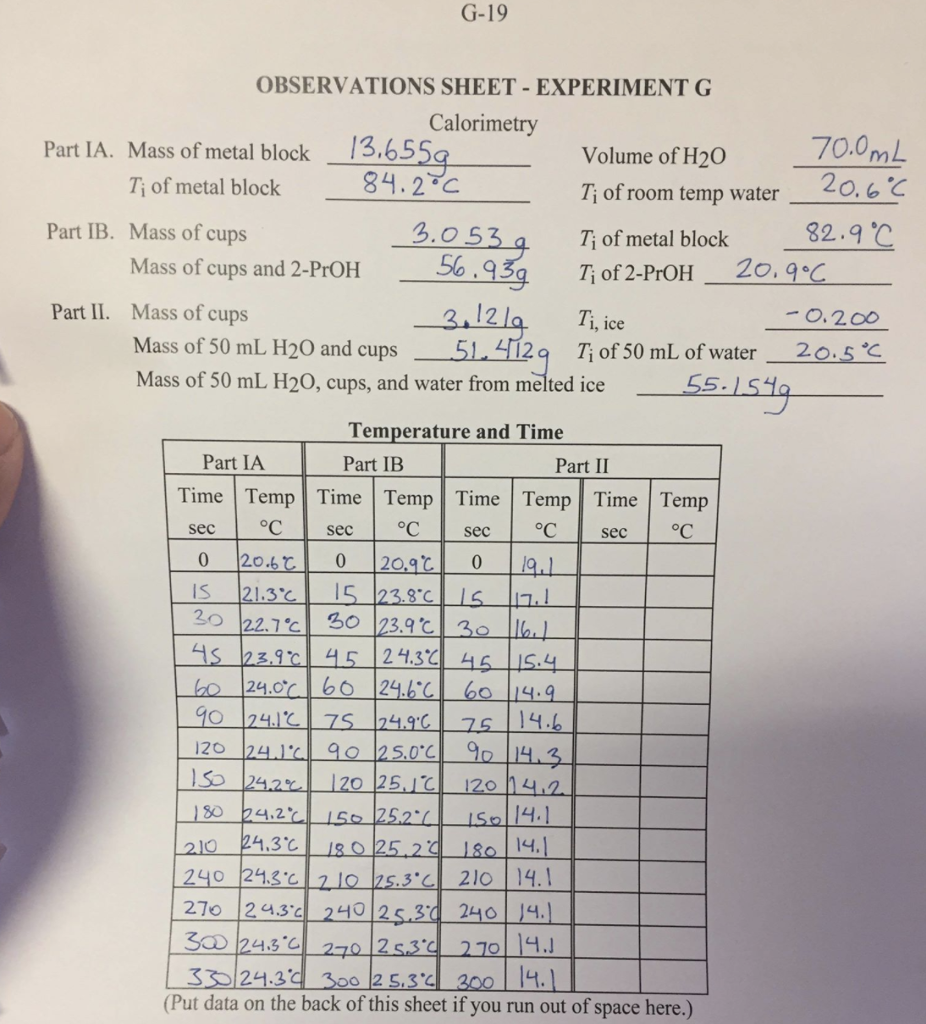 G-19
OBSERVATIONS SHEET - EXPERIMENT G
Calorimetry
Part IA. Mass of metal block 13.655g Volume of H2O 70.0mL
Ti of metal block 84.2°C Ti of room temp water 20.6°C
Part IB. Mass of cups 3.053g Ti of metal block 82.9°C
Mass of cups and 2-PrOH 56.93g Ti of 2-PrOH 20.9°C
Part II. Mass of cups 3.121g Ti, ice -0.200
Mass of 50 mL H2O and cups 51.412g Ti of 50 mL of water 20.5°C
Mass of 50 mL H2O, cups, and water from melted ice 55.154g
Temperature and Time
Part IA Part IB Part II
Time Temp Time Temp Time Temp Time Temp
sec °C sec °C sec °C sec °C
0 20.6°C 0 20.9°C 0 19.1
15 21.3°C 15 23.8°C 15 17.1
30 22.7°C 30 23.9°C 30 16.1
45 23.9°C 45 24.3°C 45 15.4
60 24.0°C 60 24.6°C 60 14.9
90 24.1°C 75 24.9°C 75 14.6
120 24.1°C 90 25.0°C 90 14.3
150 24.2°C 120 25.1°C 120 14.2
180 24.2°C 150 25.2°C 150 14.1
210 24.3°C 180 25.2°C 180 14.1
240 24.3°C 210 25.3°C 210 14.1
270 24.3°C 240 25.3°C 240 14.1
300 24.3°C 270 25.3°C 270 14.1
330 24.3°C 300 25.3°C 300 14.1
(Put data on the back of this sheet if you run out of space here.)